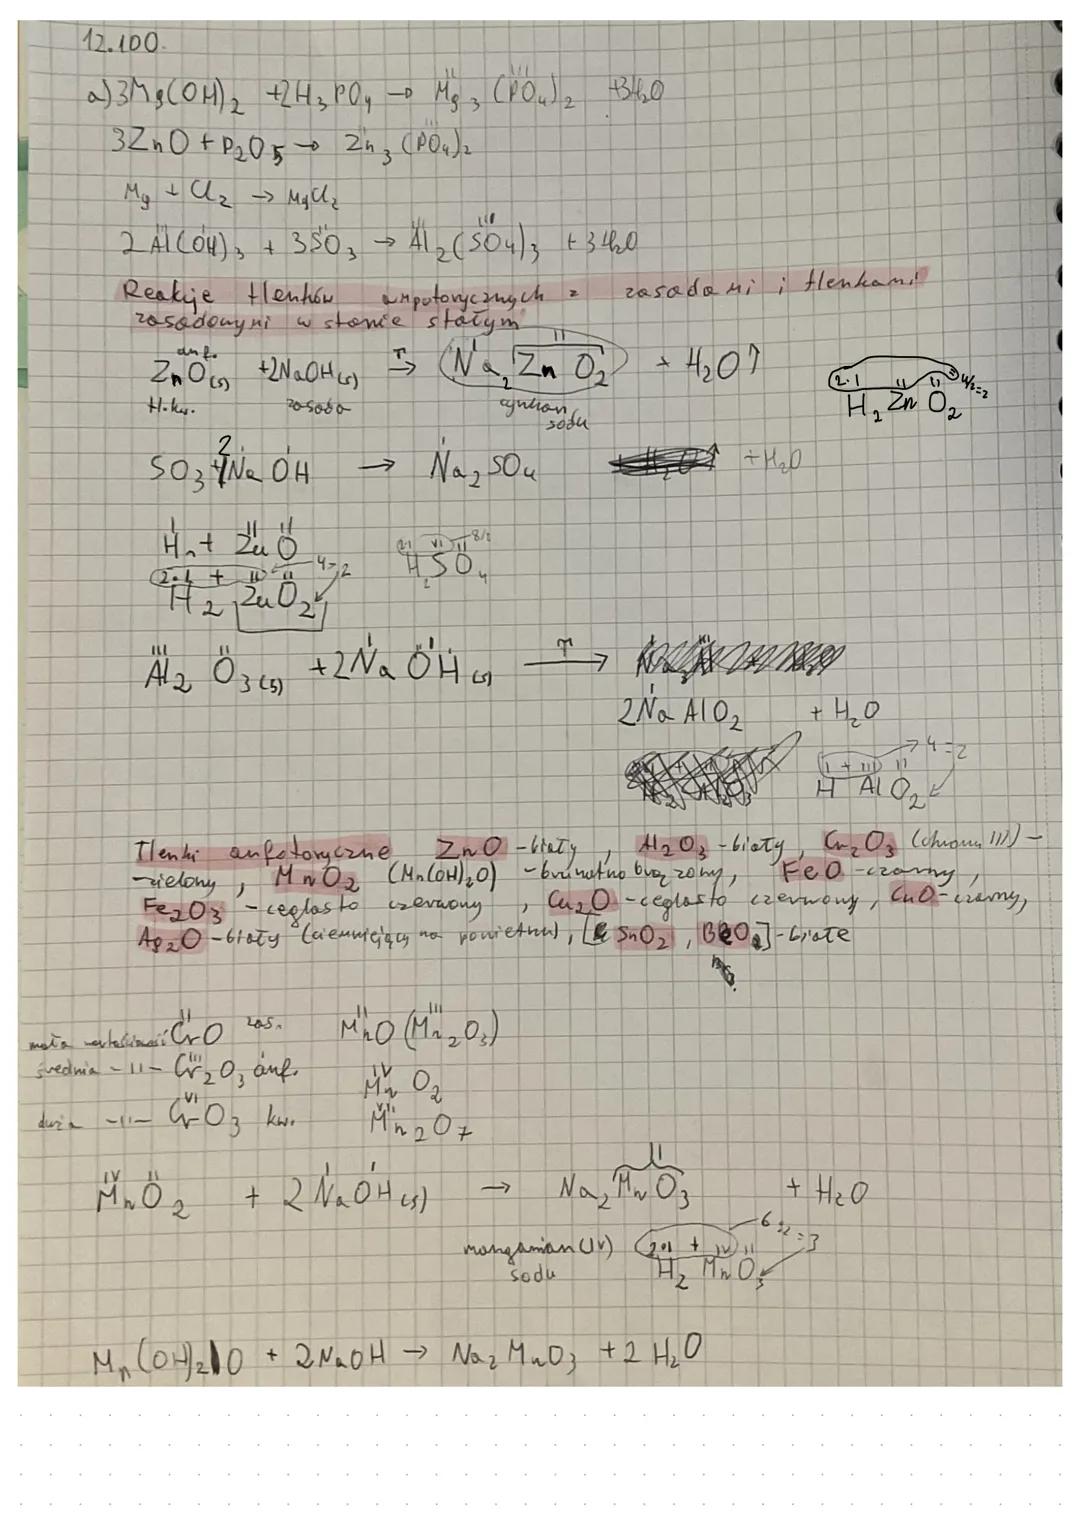 12.100.
a) 3Mg(OH)₂ + 2H₃PO₄ → Mg₃(PO₄)₂ + 3H₂O
3ZnO + P₂O₅ → Zn₃(PO₄)₂
Mg + Cl₂ → MgCl₂
2Al(OH)₃ + 3SO₃ → Al₂(SO₄)₃ + 3H₂O
Reakcje tlenków ampotorycznych z zasadami i tlenkami
zasadowymi w stanie stałym
anf.
ZnO(s) + 2NaOH(s) →T Na₂ZnO₂ + H₂O↑
tl.kw. zasada cynkan sodu
2·1 II II 4/2=2
H₂ZnO₂
SO₃ + 2NaOH → Na₂SO₄ + H₂O
Hn + ZnO
2·1 + II II 4 = 2
H₂ZnO₂
2·1 VI II 8/2
H₂SO₄
Al₂O₃(s) + 2NaOH(s) →T
2NaAlO₂ + H₂O
I + III II 4 = 2
H AlO₂
Tlenki anfotoryczne ZnO - biały, Al₂O₃ - biały, Cr₂O₃ (chromu III) -
- zielony, MnO₂ (Mn(OH)₂O) - brunatno brązowy, FeO - czarny,
Fe₂O₃ - ceglasto czerwony, Cu₂O - ceglasto czerwony, CuO - czarny,
Ag₂O - biały (ciemniejący na powietrzu), [SnO₂, BeO] - białe
mała wartościowość CrO zas. MnO (Mn₂O₃)
średnia -11- Cr₂O₃ anf. MnO₂
duża -11- CrO₃ kw. Mn₂O₇
MnO₂ + 2NaOH(s) → Na₂MnO₃ + H₂O
manganian (IV) sodu
2·1 + IV II 6/2 = 3
H₂MnO₃
Mn(OH)₂O + 2NaOH → Na₂MnO₃ + 2H₂O